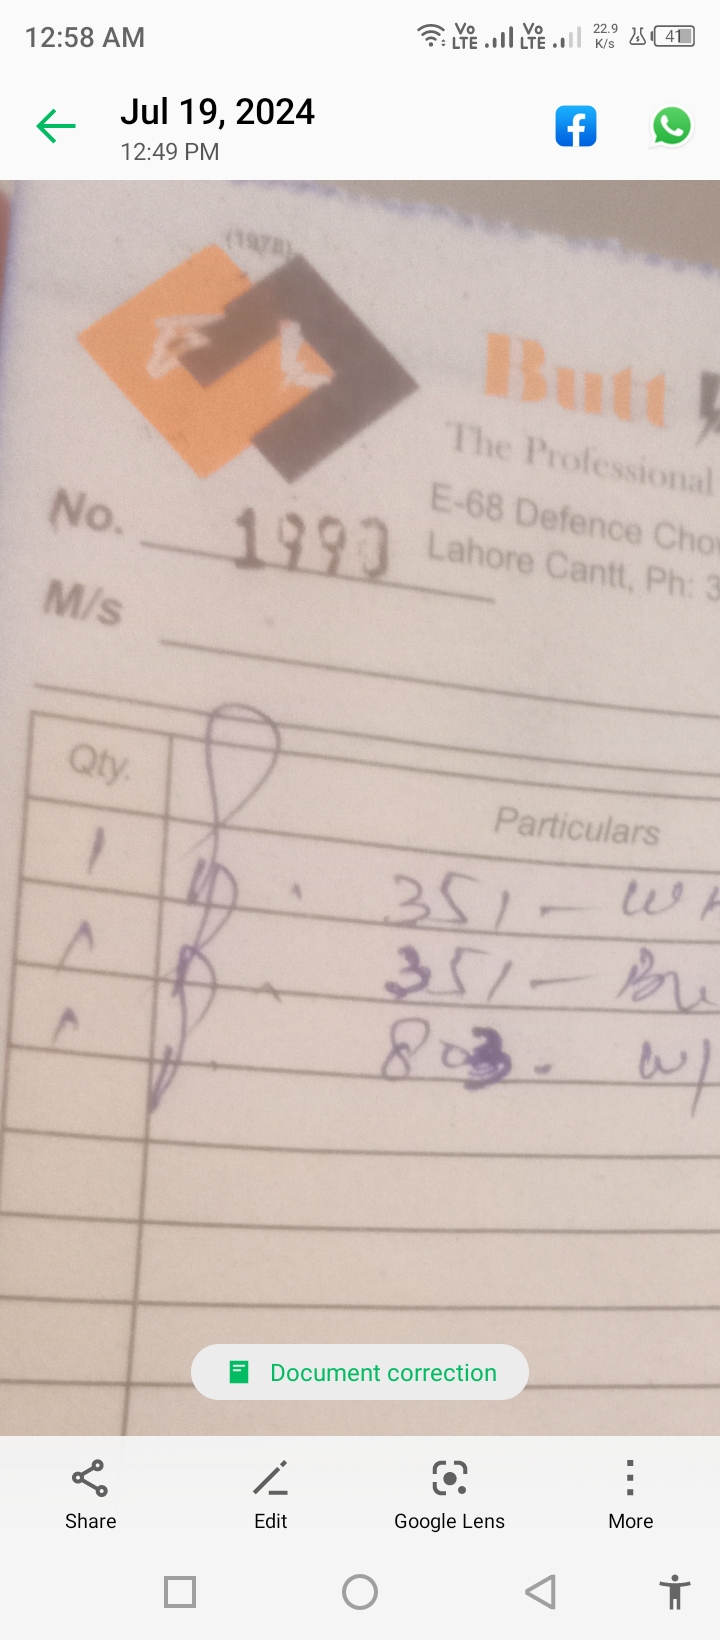 12:58 AM
Vo LTE Vo LTE 22.9 K/s 41
Jul 19, 2024
12:49 PM
(1978)
B L
Butt
The Professional
E-68 Defence Cho
Lahore Cantt, Ph: 3
No. 1990
M/s
Qty. Particulars
1 351 - W
351 - 
803 - W
Document correction
Share Edit Google Lens More